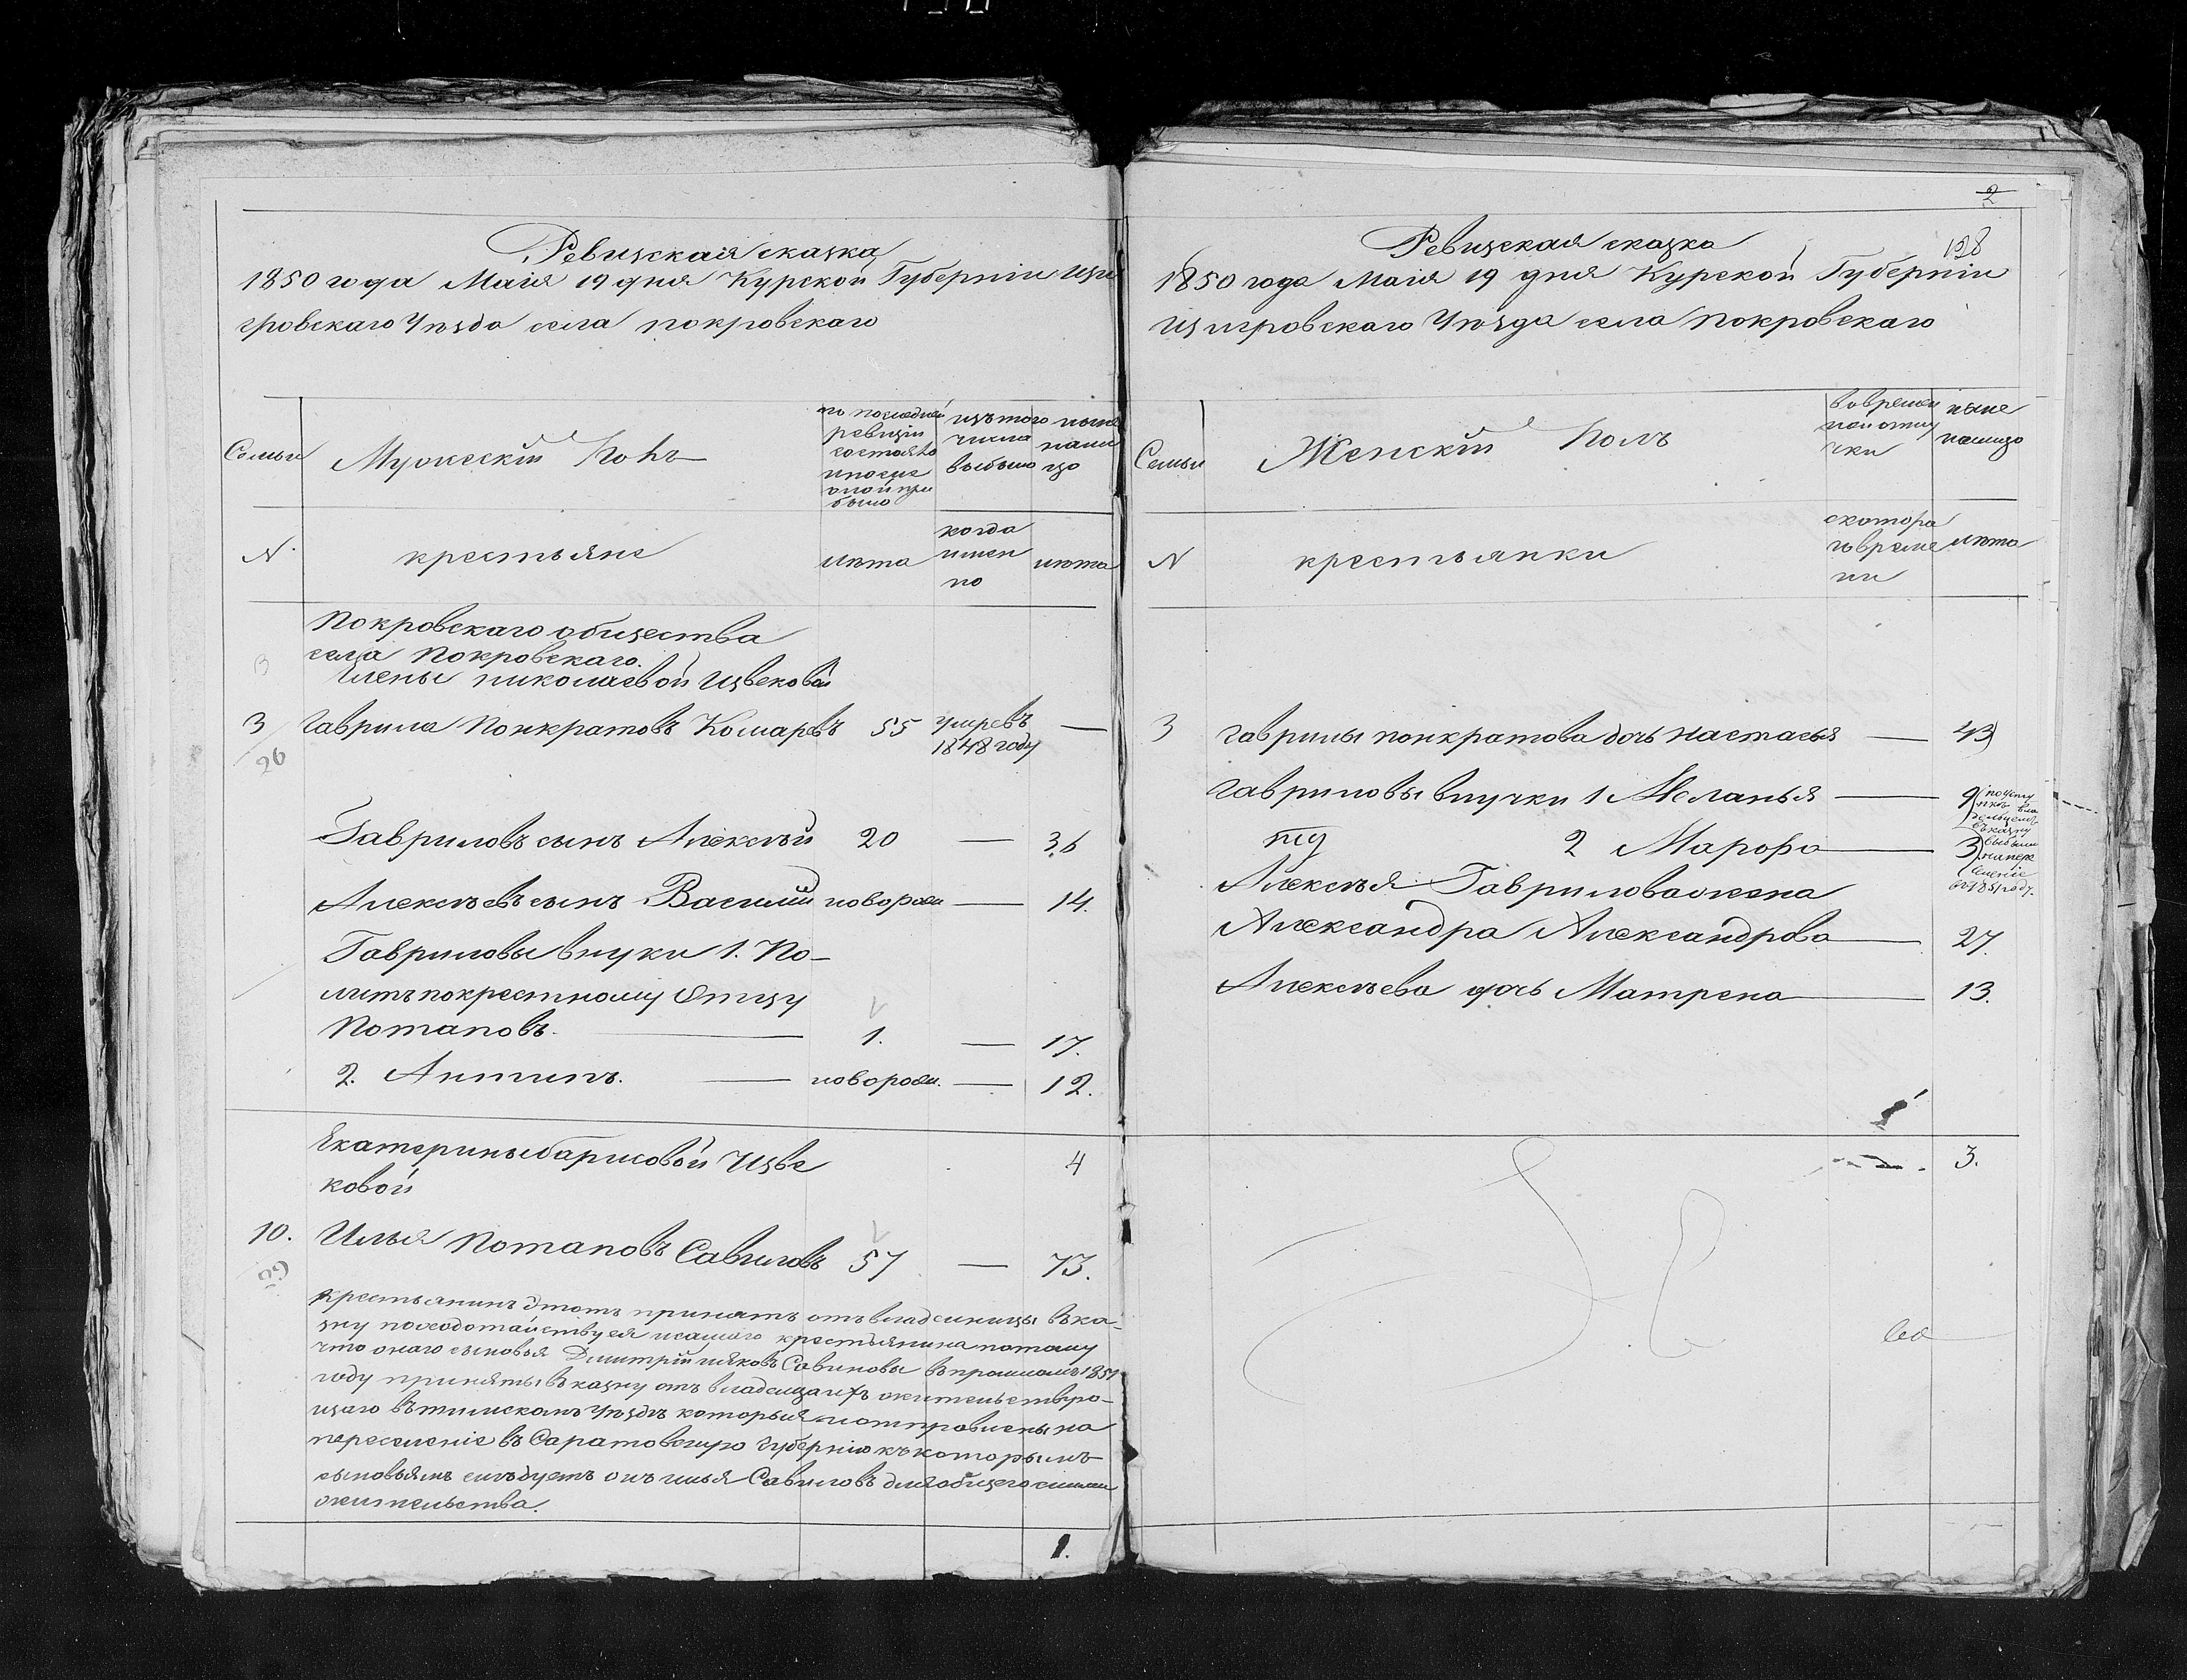 Ревизская сказка
1850 года Маія 19 дня Курской Губерніи Щи
гровскаго Уѣзда села покровскаго
Семьи
Мужескій Полъ
по последней
ревизіи
состояло
и после
оной при
было
изътого
числа
выбыло
ныне
нали
цо
N
крестьяне
лѣта
когда
имен
но
лѣта
Покровскаго общества
села Покровскаго.
Елены николаевой Извековой
3 Гаврила Понкратовъ Комаревъ 55 умревъ —
1848 году
26
Гавриловъ сынъ Алексѣй 20 — 36
Алексѣевъ сынъ Василий новорож — 14.
Гавриловы внуки 1. По-
литъ покрестному Отцу
Потаповъ. — 1. — 17.
2. Антипъ. — новорож. — 12.
Екатерины барисовой Изве 4
ковой
10. Илья Потаповъ Савиловъ 57 — 73.
99
крестьянинъ Этотъ принятъ отъ владелицы въ ка-
зну походотайствуея и самого крестьянина потому
что онаго сыновья Дмитрій Савиновы впрошломъ 1851
году приняты въ казну отъ владелца ихъ жительствую-
щаго въ тимскомъ Уѣздѣ которыя и отправлены на
переселение въ Саратовскую Губернію къ которымъ
сыновьямъ следуетъ онъ илья Савиловъ для общего сними
жительства.
1.
2
128
Ревизская сказка
1850 года Маія 19 дня Курской Губерніи
Щигровскаго Уѣзда села Покровскаго
Семьи
Женскій Полъ
вовремен
ной отлу
чки
ныне
налицо
N
крестьянки
скотора
говреме
ни
лѣта
3 Гаврилы понкратова дочь настасья — 43
Гавриловы внучки 1 Меланья — 9
2 Марфа — 3
поусту
въказну
выбыли
напере
селеніе
въ 1851 году.
Алексѣя Гаврилова жена
Александра Александрова — 27.
Алексѣева дочь Матрена — 13.
3.